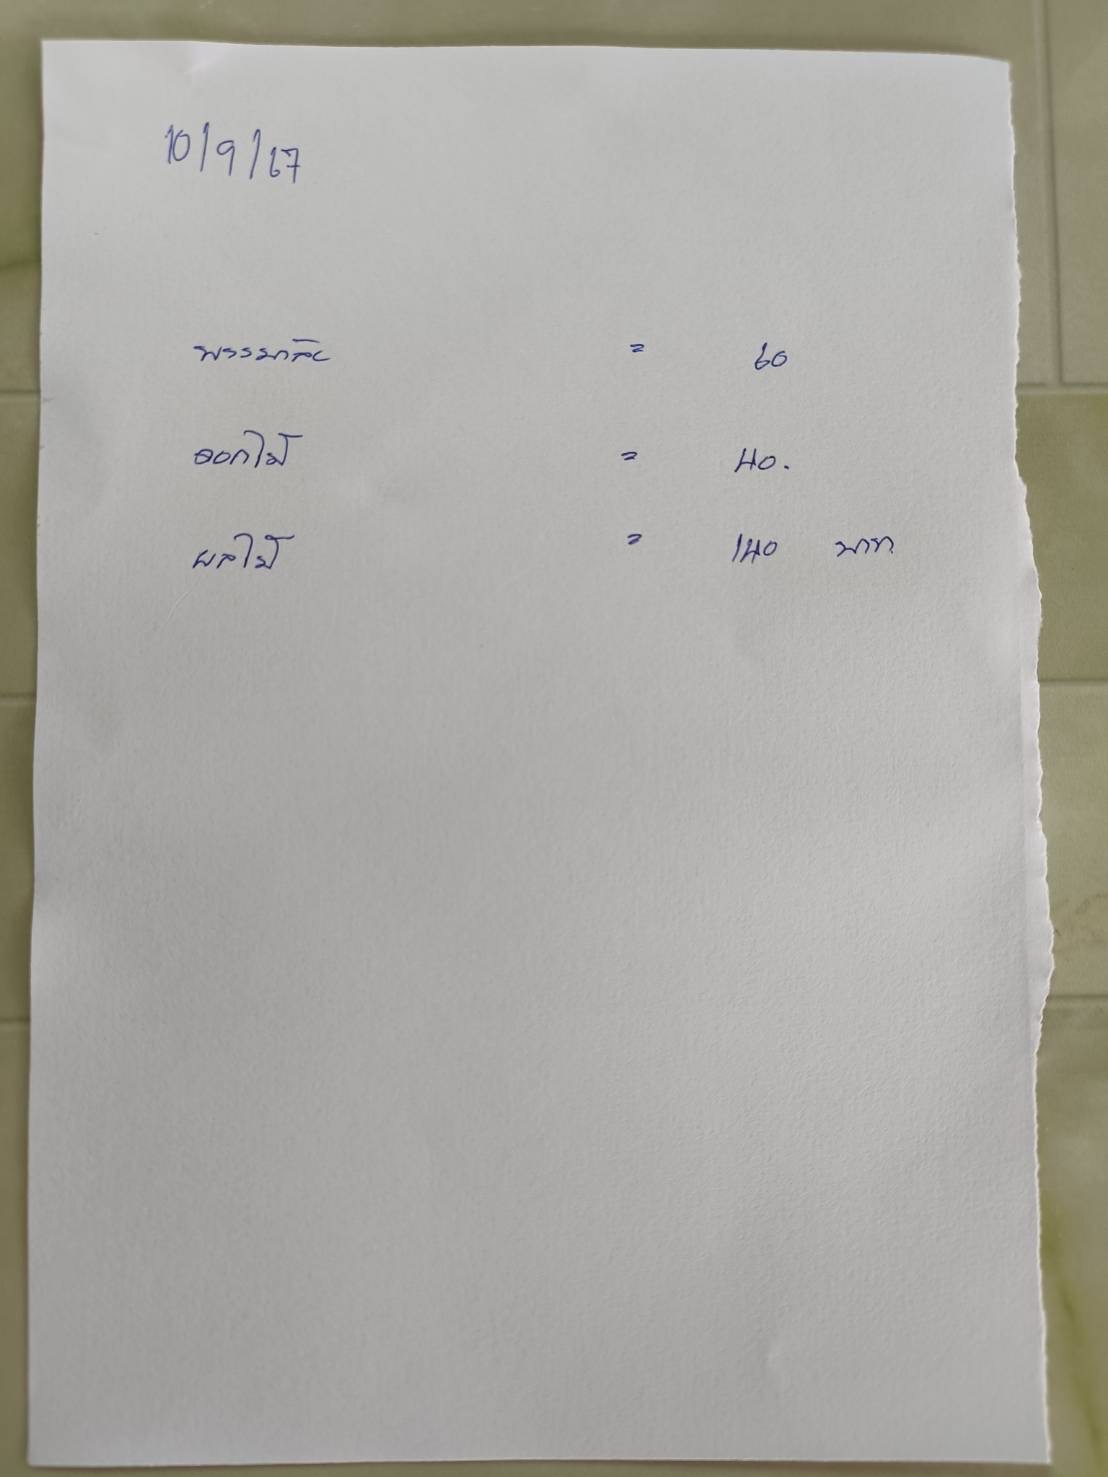 10/9/67
พวงมาลัย = 60
ดอกไม้ = 40.
ผลไม้ = 140 บาท